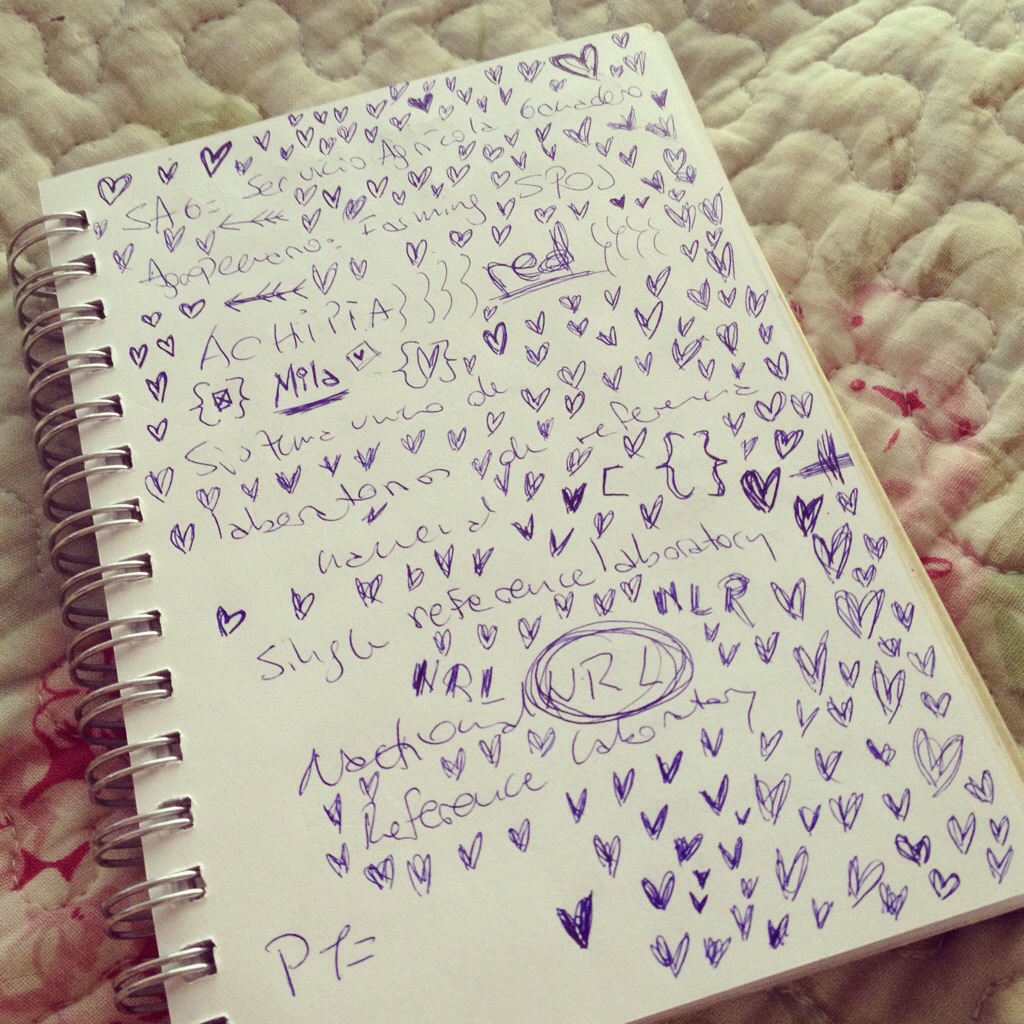 SAG= Servicio Agrícola Ganadero
Agropecuario: Farming SPOJ
ACHIPIA red
Mila
Sistema unico de
laboratorios de referencia
Single reference laboratory NLR
NRL NRL
National
Reference Laboratory
PT=